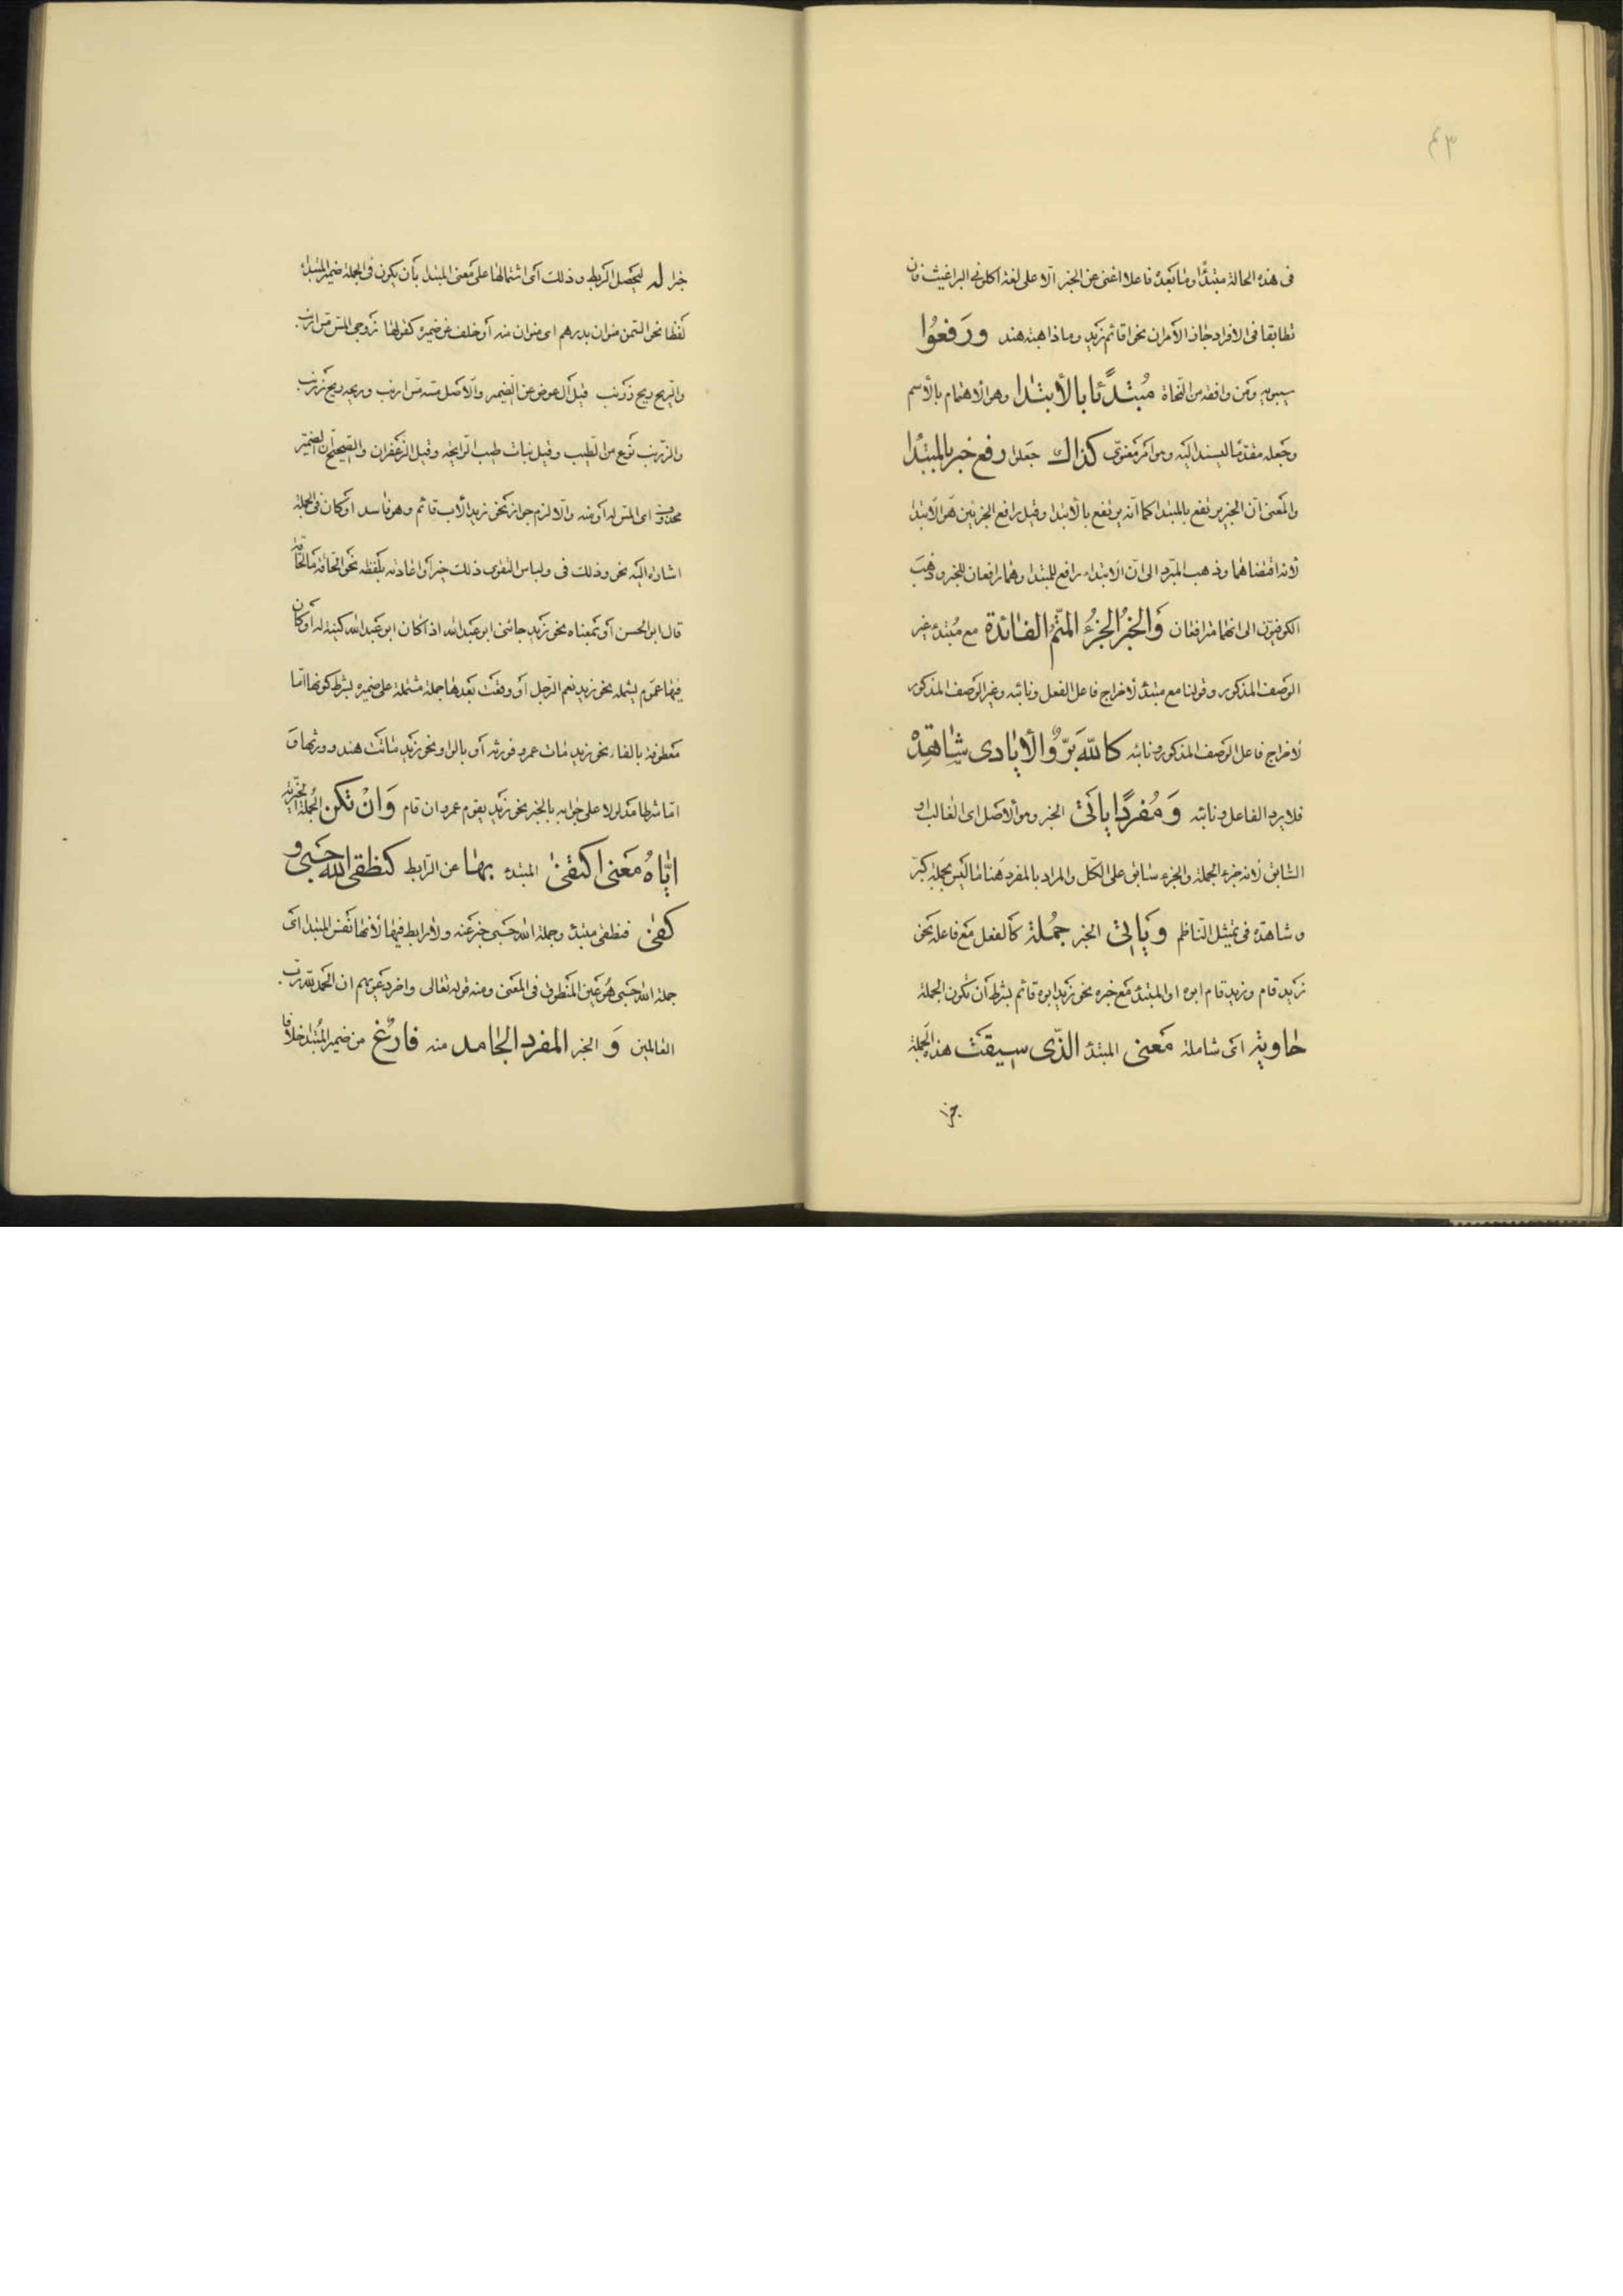 ٤٣
فى هذه الحالة مبتدًا وما بعده فاعلا اغنى عن الخبر الّا على لغة اكلونى البراغيث فان
تطابقا فى الافراد جاز الامران نحو اقائم زيد وماذاهبة هند ورَفعُوا
سيبويه ومن وافقه من النّحاة مُبتدًئا بالأبتدا وهو الاهتمام بالأسم
وجعله مقدّما ليسند اليه وهو امر معنوىّ كذاك جعلوا رفع خبر بالمبتدا
والمعنى انّ الخبر يرتفع بالمبتدا كما انّه يرتفع بالأبتدا وقيل رافع الجزئين هو الابتدا
لأنه اقتضاهما وذهب المبّرد الى انّ الابتداء رافع للمبتدا وهما رافعان للخبر وذهبَ
الكوفيّون الى انهّما مترافعان وَالخبرُ الجزءُ المتّمُ الفائدة مع مُبتدء غير
الوصف المذكور وقولنا مع مبتدء لأخراج فاعل الفعل ونائبه وغير الوصف المذكور
لأخراج فاعل الوصف المذكور ونائبه كاللّه برٌّ والأيادى شاهدهْ
فلايرد الفاعل ونائبه وَمُفردًا ياتى الخبر وهو الأصل اى الغالب او
السّابق لأنه جزء الجملة والجزء سابق على الكّل والمراد بالمفرد هنا ماليس بجملة كبرّ
وشاهدة فى تمثيل النّاظم وَياتى الخبر جمُلة كالفعل مع فاعله نحو
زيد قام وزيد قام ابوه او المبتدء مع خبره نحو زيد ابوه قائم بشرط أن تكون الجملة
حاوية اى شاملة مَعنى المبتدء الذّى سيقت هذه الجملة
خبرا
خبرا له ليحصل الربط وذلك اى اشتمالها على معنى المبتدا بأن يكون فى الجملة ضمير المبتدا
لفظا نحو السّمن منوان بدرهم اى منوان منه أو خلف عن ضميره كقولها زوجى المسّ مسّ ارنب
والرّيح ريح زرنب قيل أل عوض عن الضّمير والأصل مسّه مسّ ارنب وريحه ريح زرنب
والزّرنب نوع من الطّيب وقيل نبات طيب الرّائحة وقيل الزعفران والصّحيح أنّ الضمير
محذوف اى المسّ له أو منه والّا لزم جواز نحو زيد الأب قائم وهو فاسد او كان فى الجملة
اشارة اليه نحو وذلك فى ولباس التّقوى ذلك خير أو اعادته بلفظه نحو الحاقّة ما الحاقّة
قال ابو الحسن أو بمعناه نحو زيد جائنى ابو عبد اللّه اذا كان ابو عبد اللّه كنية له أو كان
فيها عموم يشمله نحو زيد نعم الرّجل أو وقعت بعدها جملة مشتملة على ضميره بشرط كونها امّا
معطوفة بالفاء نحو زيد مات عمرو فورثه أو بالواو نحو زيد ماتت هند وورثها وَ
امّا شرطا مدلولا على جوابه بالخبر نحو زيد يقوم عمرو ان قام وَانْ تكن الجُملة الخبرية
ايّاهُ مَعنى اكتفىٰ المبتدء بها عن الرّابط كنطقى اللّه حَسْبى و
كفىٰ فنطقى مبتدء وجملة اللّه حسبى خبر عنه ولارابط فيها لأنها نفس المبتدا اى
جملة اللّه حسبى هُو عَين المنطوق فى المعنى ومنه قوله تعالى واخر دعويهم ان الحمد للّه ربّ
العالمين وَ الخبر المفرد الجامد منه فارغ من ضمير المُبتدا خلافا